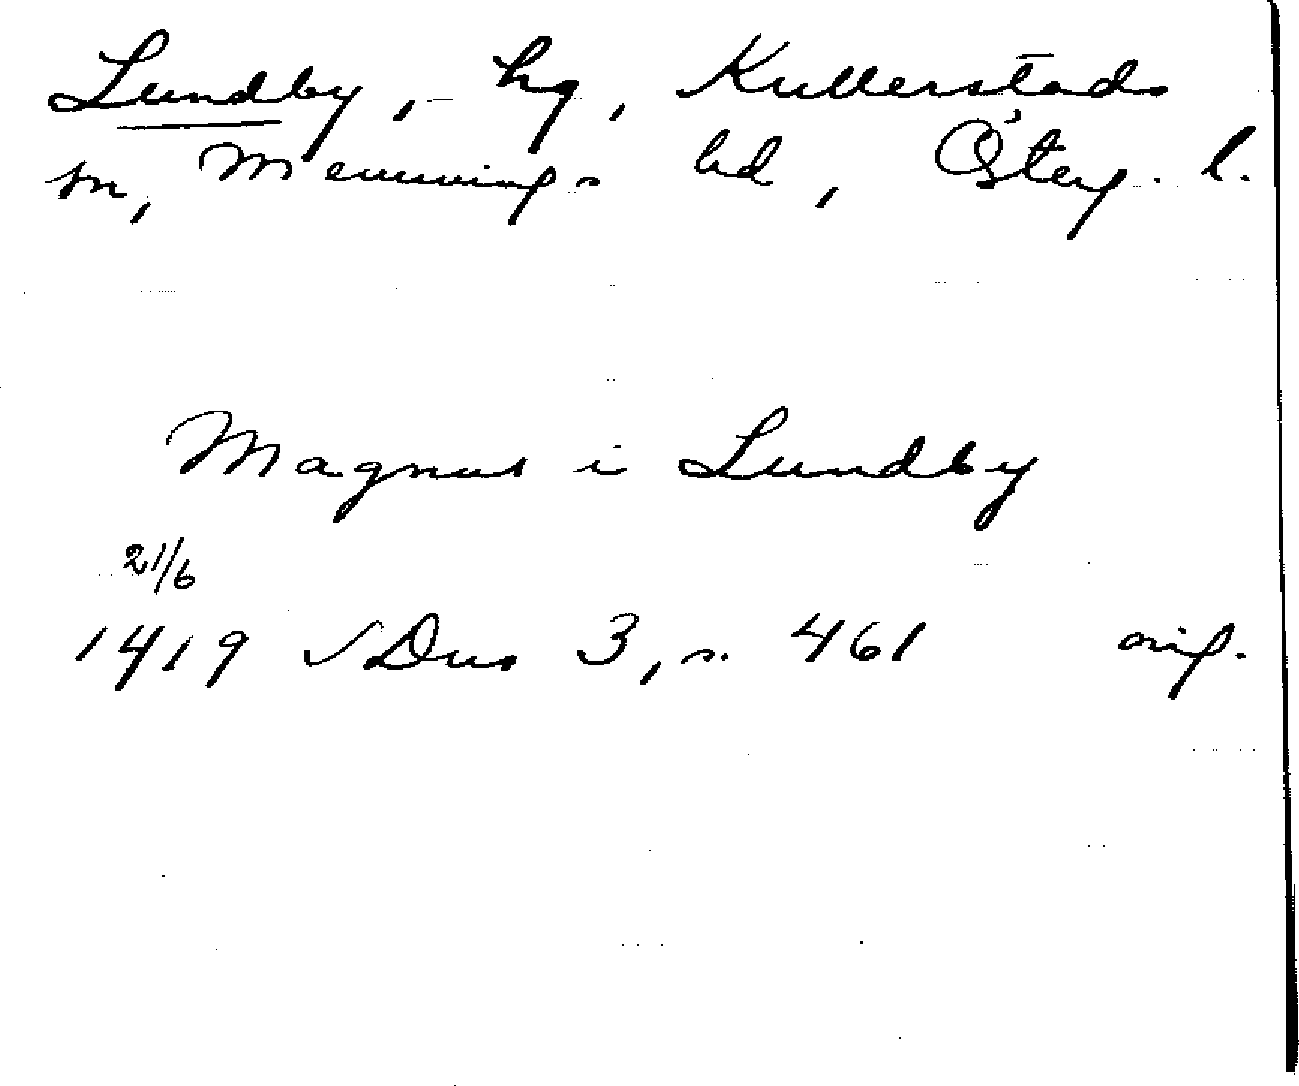 Lundby, hg, Kullerstads
sn, Memmings hd, Österg. l.
Magnus i Lundby
21/6
1419 SDns 3, s. 461 orig.